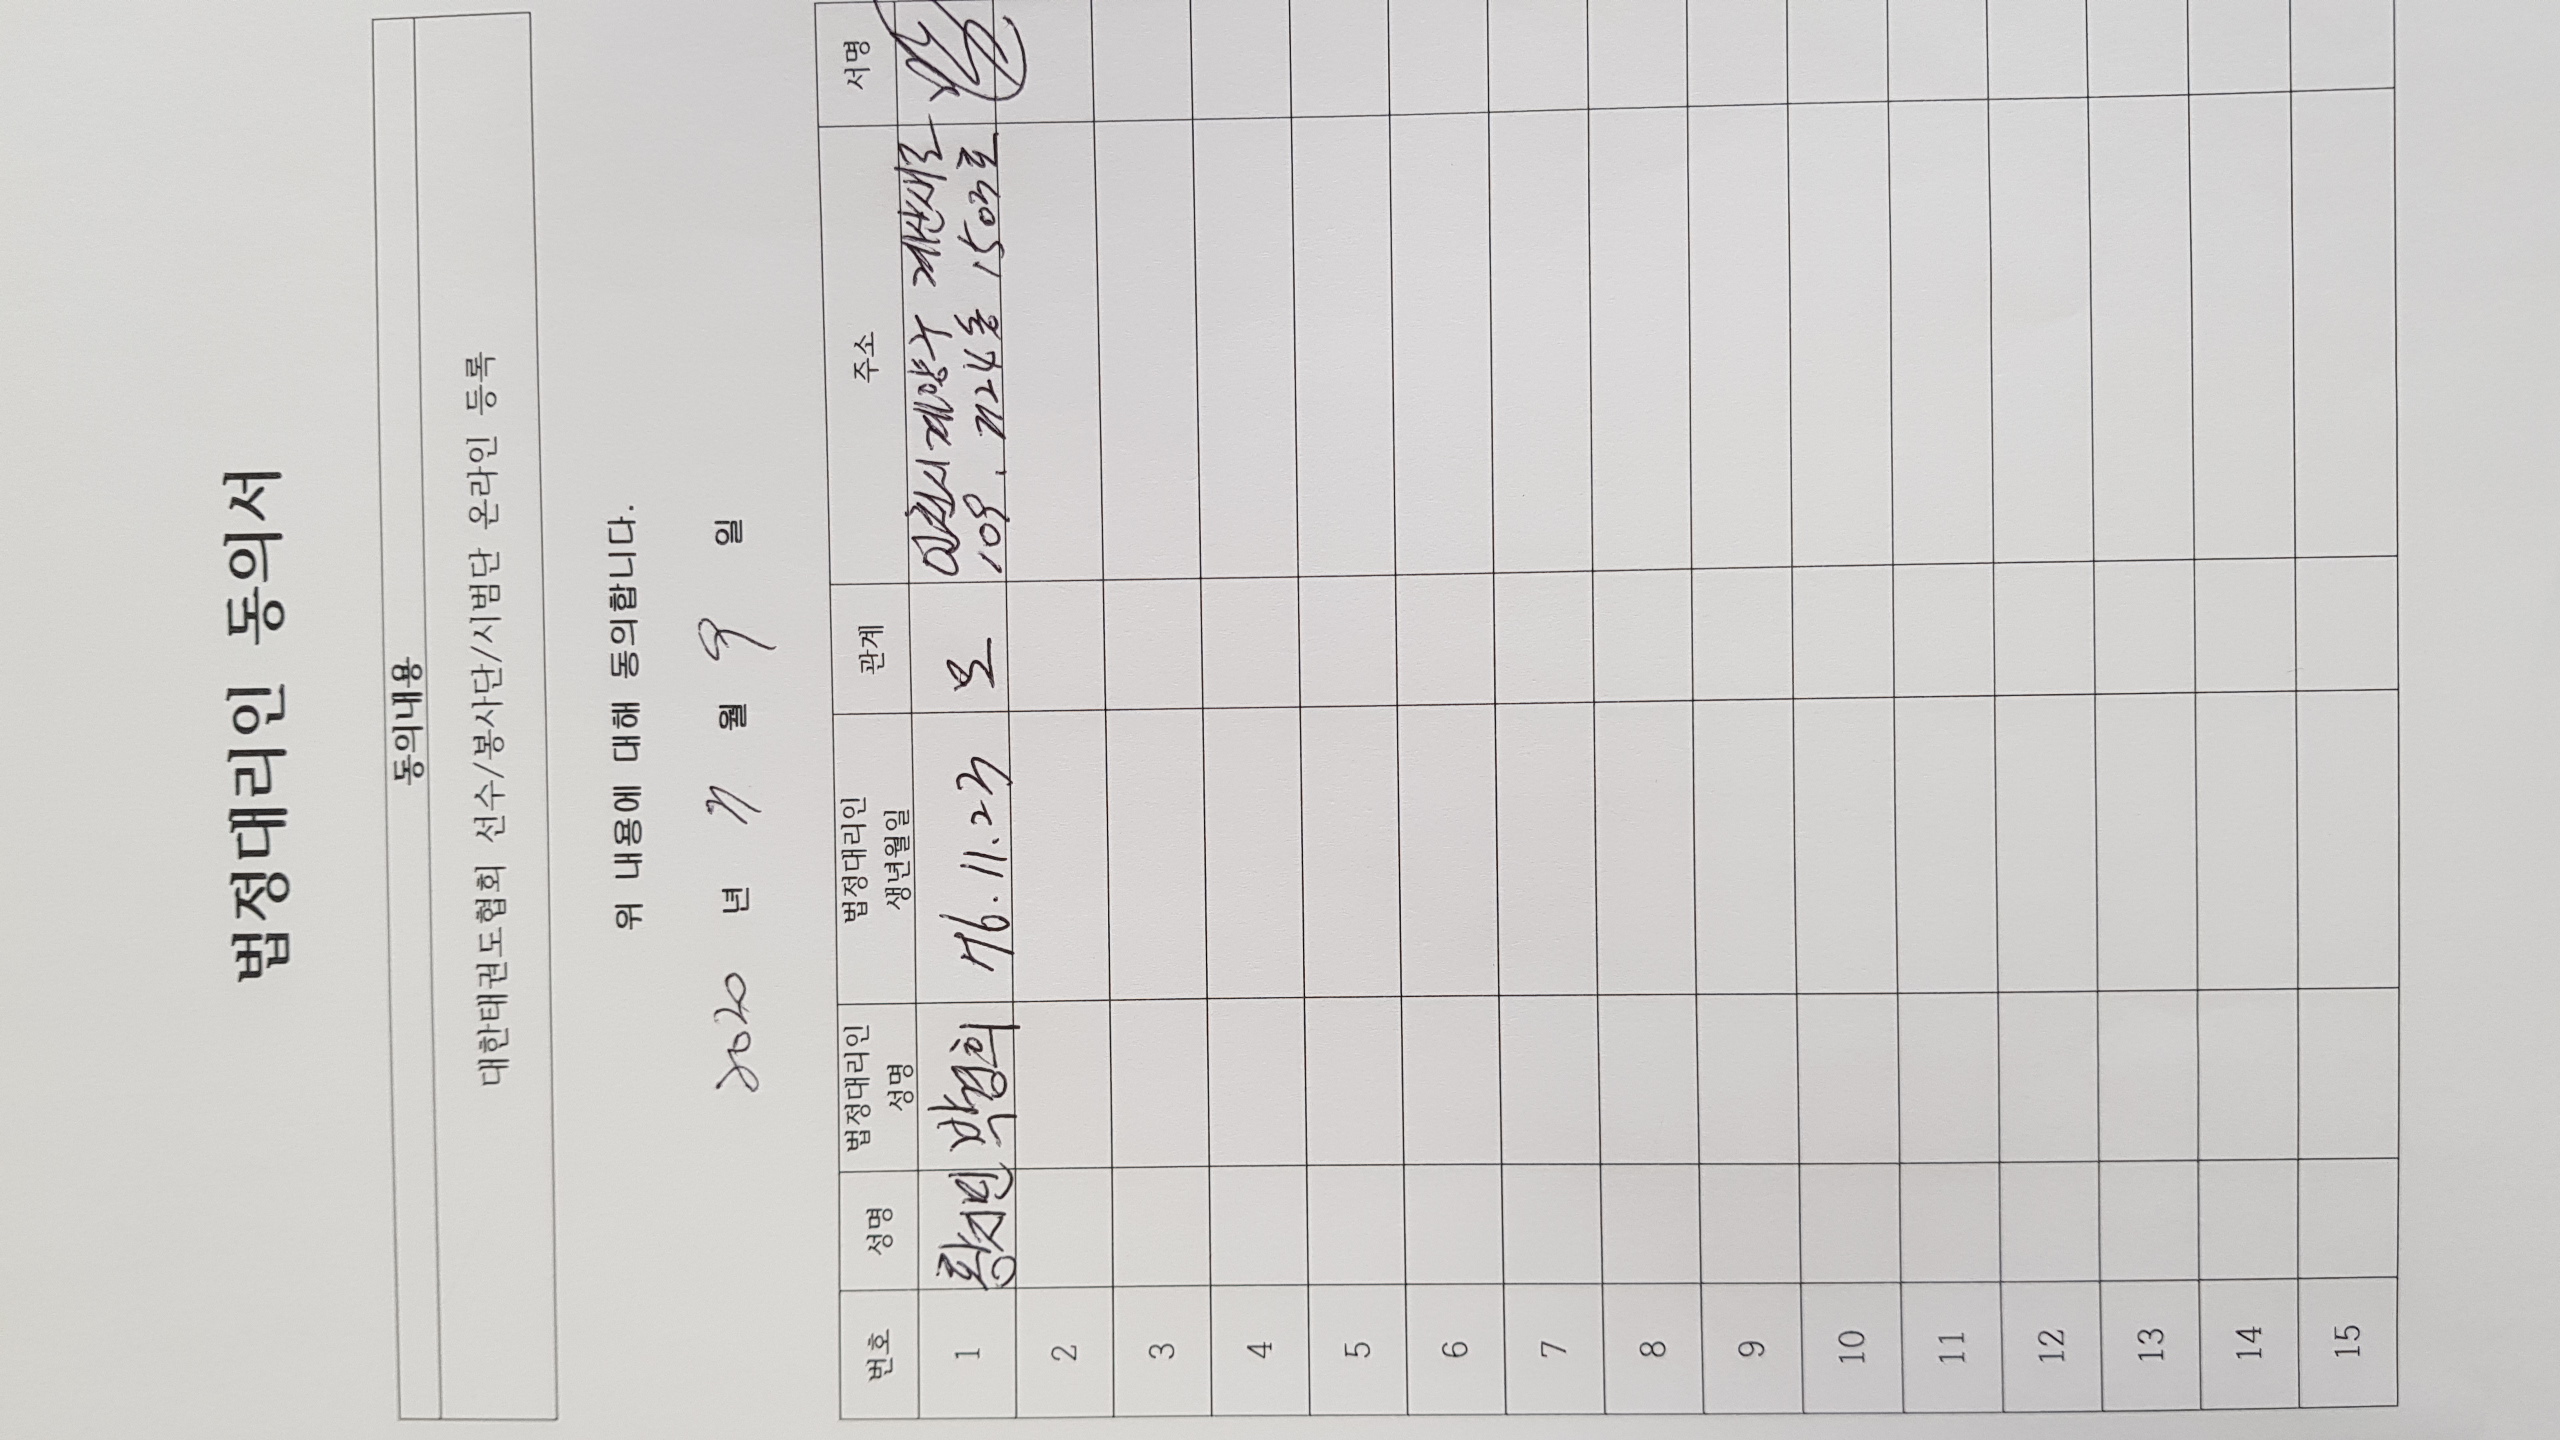 법정대리인 동의서
동의내용
대한태권도협회 선수/봉사단/시범단 온라인 등록
위 내용에 대해 동의합니다.
2020 년 7 월 9 일
번호 성명 법정대리인 성명 법정대리인 생년월일 관계 주소 서명
1 황지민 박경희 76.11.23 모 인천시 계양구 계산새로
109. 7124동 1503호
2
3
4
5
6
7
8
9
10
11
12
13
14
15